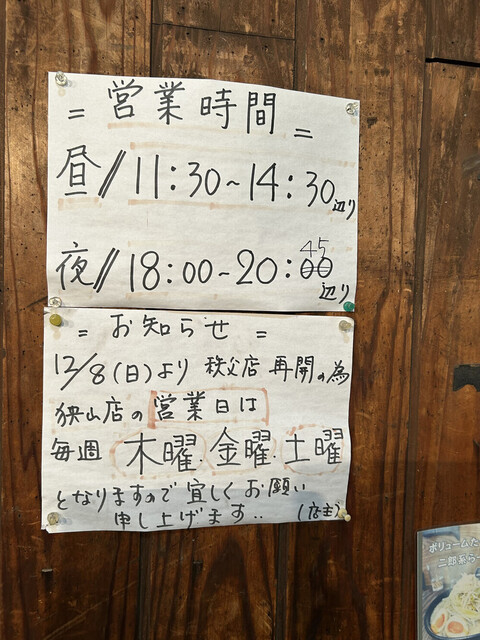 = 営業時間 =
昼// 11:30~14:30辺り
45
夜// 18:00~20:00辺り
= お知らせ =
12/8(日)より 秩父店 再開の為
狭山店の 営業日は
毎週 木曜.金曜.土曜
となりますので宜しくお願い
申し上げます.. (店主)
ボリュームた
二郎系ら